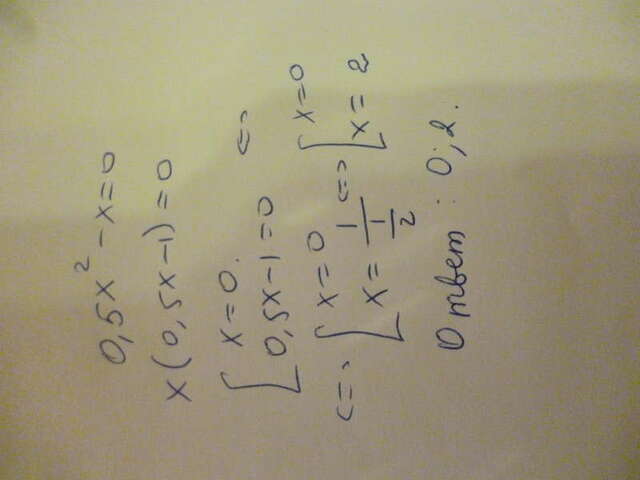 0,5x² - x = 0
x(0,5x-1) = 0
[ x = 0.
[ 0,5x-1 = 0 <=>
<=> [ x = 0
[ x = 1/(1/2) <=> [ x = 0
[ x = 2
Ответ: 0; 2.